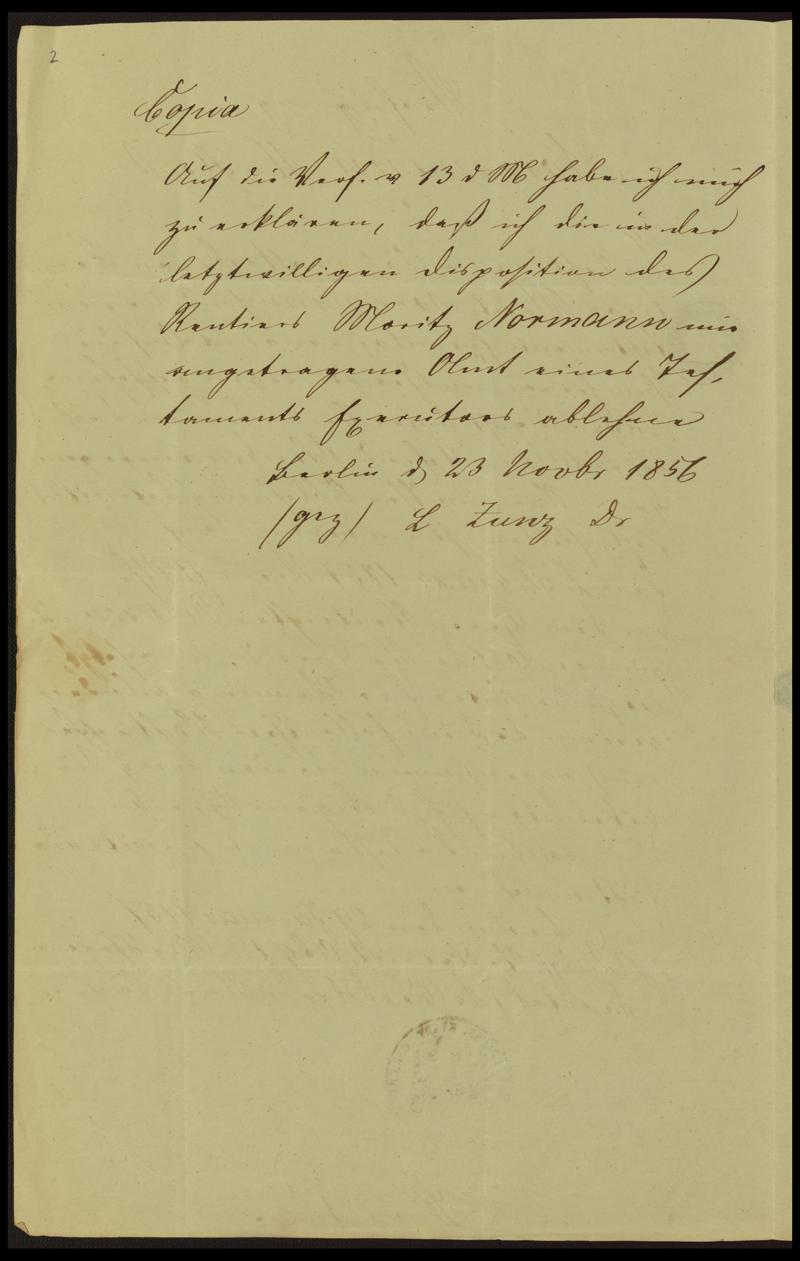 2
Copia
Auf die Verf. v 13 d M habe ich mich
zu erklären, daß ich die in der
letztwilligen Disposition des
Rentiers Moritz Normann mir
angetragene Amt eines Tes,
taments Executors ablehne
Berlin d 23 Novbr 1856
/gez/ L Zunz Dr